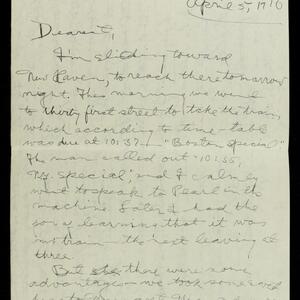 April 5, 1910
Dearest,
I'm sliding toward
New Haven, to reach there tomorrow
night. This morning we went
to thirty first street to take the train,
which according to time-table
was due at 10:37. "Boston Special"
The man called out "10:35,
N.Y. Special", and I calmly
went to speak to Pearl in the
machine. Later I had the
joy of learning that it was
my train – the next leaving at
three.
But there were some
advantages – we took some